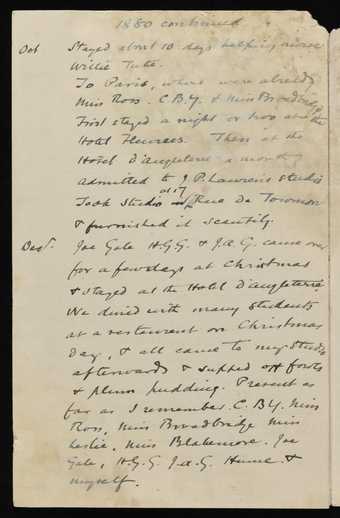 1880 continued
Oct Stayed about 10 days helping nurse
Willie Tuke.
To Paris, where were already
Miss Ross. C.B.Y. & Miss Broadbridge
First stayed a night or two at the
Hotel Fleurees. Then at the
Hotel D'angleterre a month
admitted to J. P. Laurens Studio
Took Studio at 17 Rue De Tournon
& furnished it scantily.
Dect. Joe Gale H.G.G. & J.A.G. came over
for a few days at Christmas
& stayed at the Hotel D'angleterre
We dined with many students
at a restaurent on Christmas
Day, & all came to my Studio
afterwards & supped off fowls
& plum pudding. Present as
far as I remember. C.B.Y. Miss
Ross, Miss Broadbridge Miss
Leslie, Miss Blakemore. Joe
Gale, H.G.G. J.A.G. Hume &
myself.